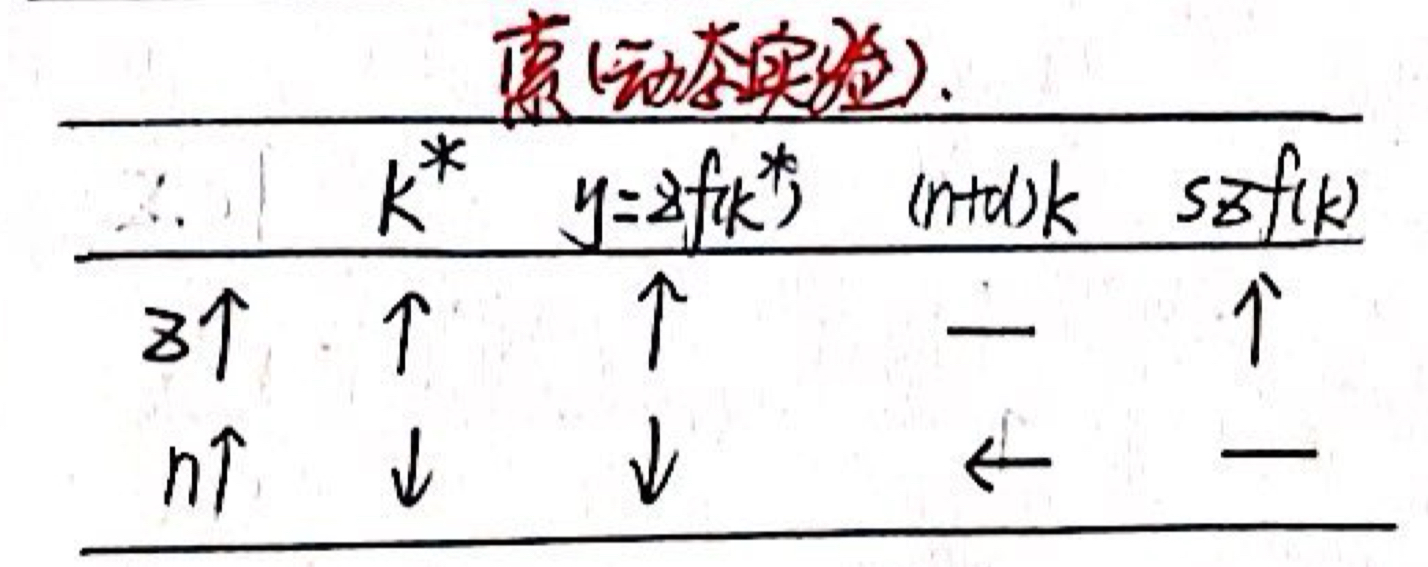 (动态实验).
k* y=zf(k*) (n+d)k szf(k)
z↑ ↑ ↑ — ↑
n↑ ↓ ↓ ← —